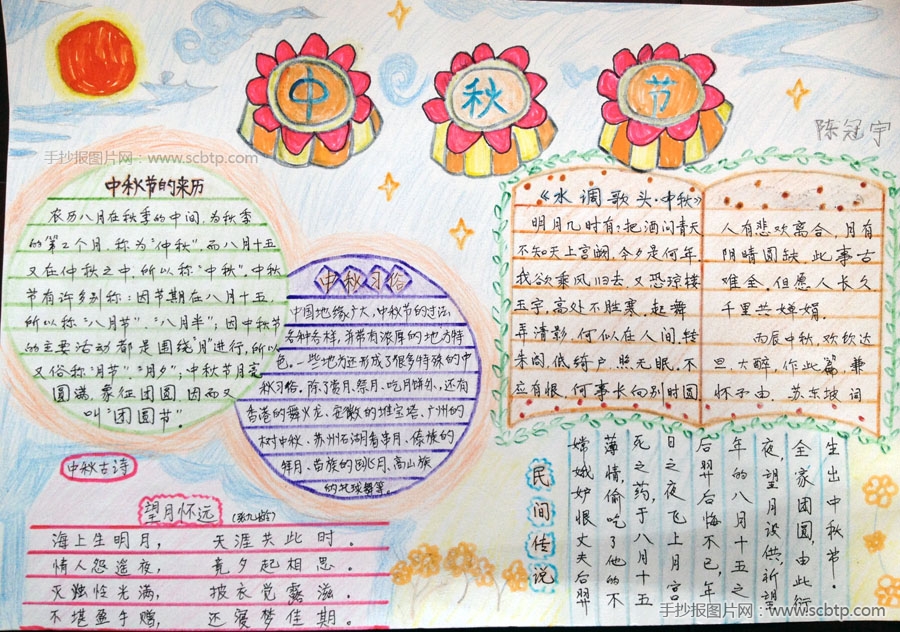 中
秋
节
陈冠宇
手抄报图片网：www.scbtp.com
手抄报图片网：www.scbtp.com
中秋节的来历
农历八月在秋季的中间,为秋季
的第二个月,称为"仲秋",而八月十五
又在仲秋之中,所以称"中秋"。中秋
节有许多别称:因节期在八月十五,
所以称"八月节"、"八月半";因中秋节
的主要活动都是围绕"月"进行,所以
又俗称"月节"、"月夕",中秋节月亮
圆满,象征团圆,因而又
叫"团圆节"。
中秋习俗
中国地缘广大,中秋节的过法
各种各样,并带有浓厚的地方特
色。一些地方还形成了很多特殊的中
秋习俗。除了赏月.祭月.吃月饼外,还有
香港的舞火龙、安徽的堆宝塔、广州的
树中秋、苏州石湖看串月、傣族的
拜月、苗族的跳月、高山族
的托球舞等。
《水调歌头·中秋》
明月几时有,把酒问青天
不知天上宫阙,今夕是何年
我欲乘风归去,又恐琼楼
玉宇,高处不胜寒,起舞
弄清影,何似在人间,转
朱阁,低绮户,照无眠,不
应有恨,何事长向别时圆
人有悲欢离合,月有
阴晴圆缺,此事古
难全.但愿人长久
千里共婵娟.
丙辰中秋,欢饮达
旦,大醉,作此篇,兼
怀子由.苏东坡 词
中秋古诗
望月怀远(张九龄)
海上生明月， 天涯共此时。
情人怨遥夜， 竟夕起相思。
灭烛怜光满， 披衣觉露滋。
不堪盈手赠， 还寝梦佳期。
民间传说
嫦娥妒恨丈夫后羿
薄情,偷吃了他的不
死之药,于八月十五
日之夜飞上月宫
后羿后悔不已,年
年的八月十五之
夜,望月设供,祈望
全家团圆,由此衍
生出中秋节。
手抄报图片网：www.scbtp.com